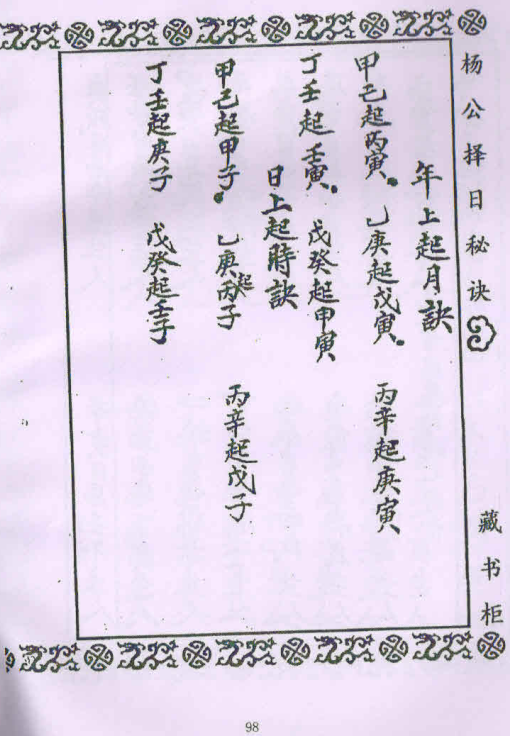 杨公择日秘诀
藏书柜
年上起月訣
甲己起丙寅。乙庚起戊寅。丙辛起庚寅
丁壬起壬寅。戊癸起甲寅
日上起時訣
甲己起甲子。乙庚起丙子 丙辛起戊子
丁壬起庚子 戊癸起壬子
98